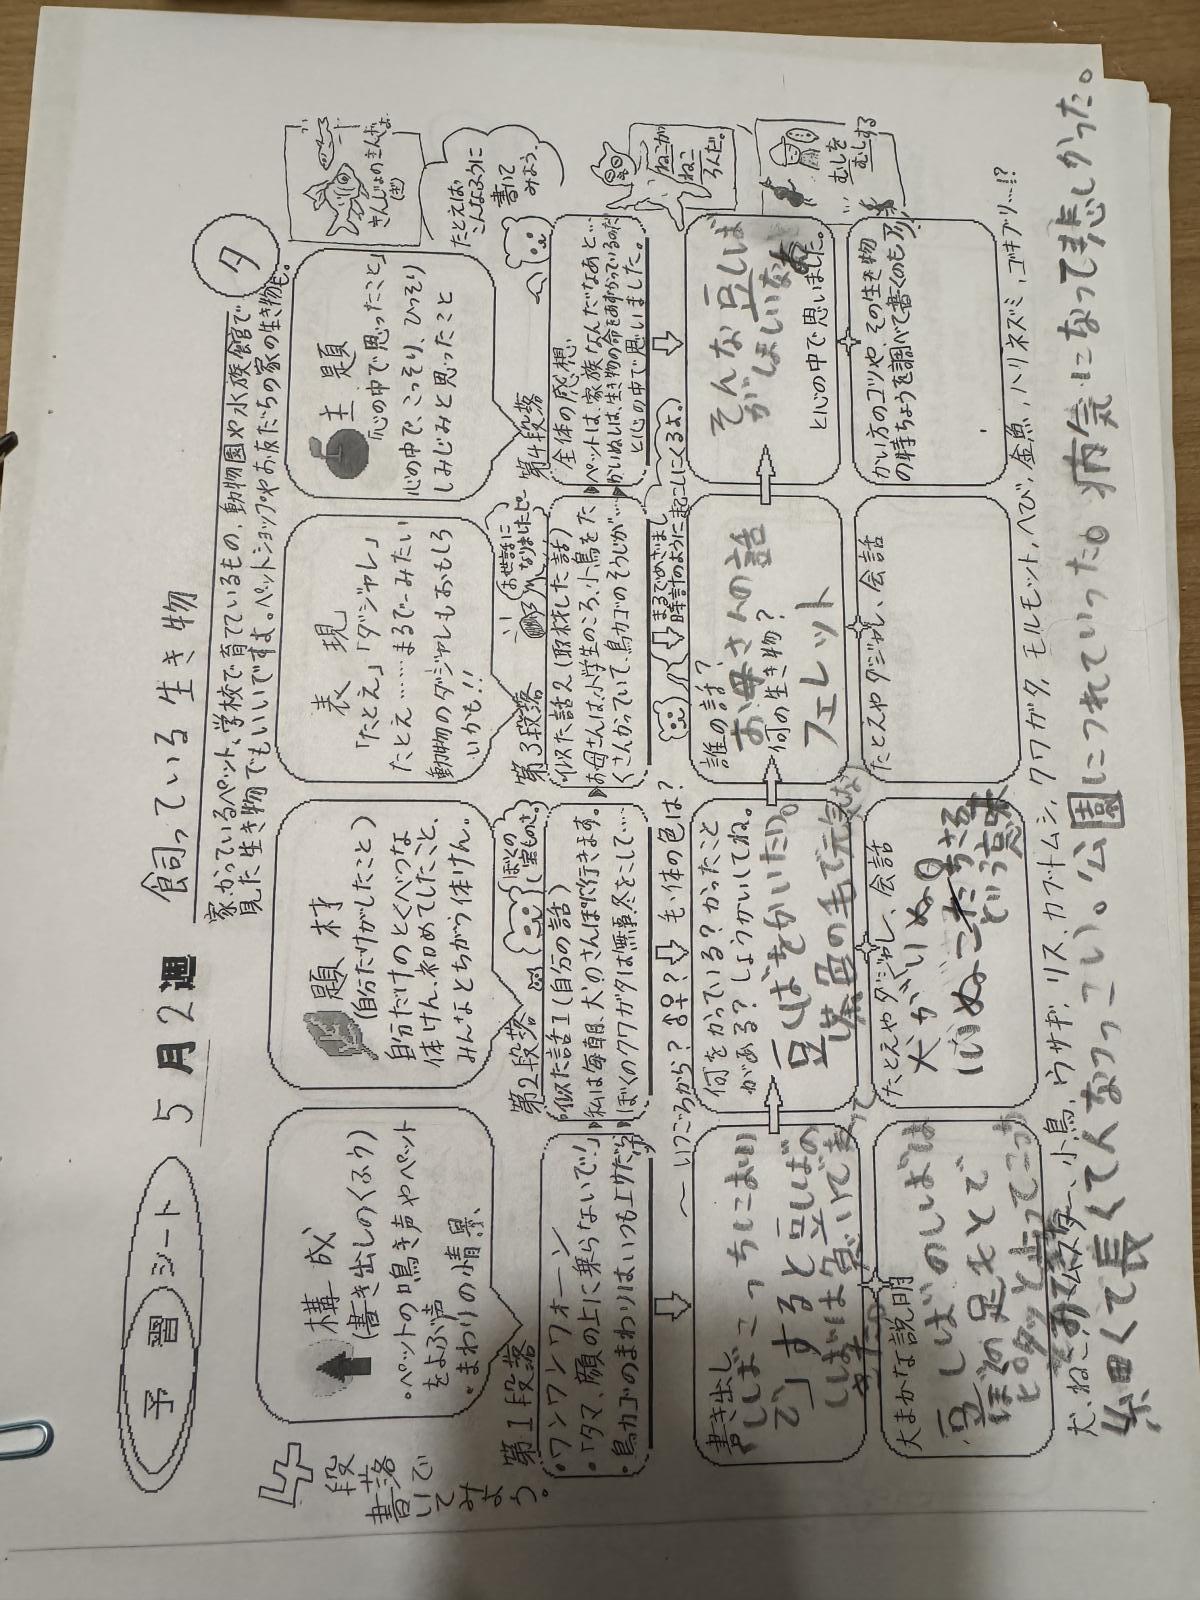 予習シート
5月2週
飼っている生き物
家でかっているペット、学校で育てているもの、動物園や水族館で
見た生き物でもいいです。ペットショップやお友だちの家の生き物も。
タ
4段
書落
いで
てみ
よ
う。
構成
(書き出しのくふう)
・ペットの鳴き声やペット
をよぶ声
・まわりの情景、
題材
(自分だけがしたこと)
自分だけのとくべつな
体けん、初めてしたこと、
みんなとちがう体けん。
表現
「たとえ」「ダジャレ」
たとえ……まるで〜みたい
動物のダジャレもおもしろ
いかも!!
主題
「心の中で思ったこと」
心の中で、こっそり、ひっそり
しみじみと思ったこと
さんじょのさんじょ
たとえば
こんなふうに
書いて
みよう。
第1段落
・ワンワンワンワォーン
・「タマ、顔の上に乗らないで!」
・鳥カゴのまわりはいつも上サだらけ
第2段落
ぼくの
宝もの。
・似た話1(自分の話)
私は毎朝、犬のさんぽに行きます。
ぼくのクワガタは無事冬をこして…
第3段落
お世話に
なりましたピー
似た話2(取材した話)
お母さんは、小学生のころ、小鳥をた
くさんかっていて、鳥カゴのそうじが…
第4段落
全体の感想
ペットは、家族なんだなあと…
かいぬしは、生き物の命をあずかっているのだ
と心の中で思いました。
ねこが
ねこ
ろんだ。
むしを
むしする
〜いつごろから?♂♀?毛・体の色は?
まるでめざまし
時計のように起こしにくるよ。
書き出し
「しばこっちにおい
で」すると豆しばの
しばは急いで走って
きた。
何をかっている?かったこと
がある?しょうかいしてね。
豆しばをかいたい。
茶色の毛で元気な
誰の話?
お母さんの話
何の生き物?
フェレット
そんな豆しば
がほしいなあ
と心の中で思いました。
大まかな説明
豆しばのしばは
ぼくの足もとで
ピタッと止ってこっち
たとえやダジャレ、会話
犬がいぬ。
いぬ
という意味
たとえやダジャレ、会話
かい方のコツや、その生き物
の特ちょうを調べて書くのも
犬、ねこ、ハムスター、小鳥、ウサギ、リス、カブトムシ、クワガタ、モルモット、へび、金魚、ハリネズミ、ゴキブリ…!?
糸田くて長くて人なつっこい。公園につれていった。病気になって悲しかった。